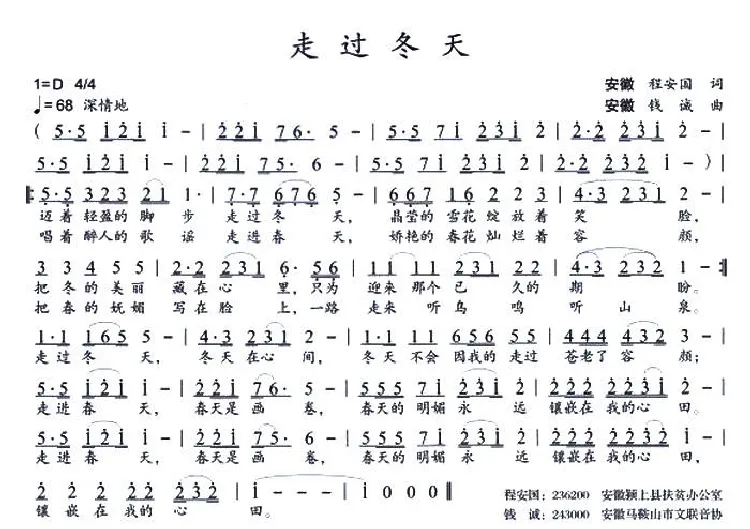 走过冬天
1=D 4/4
安徽 程安国 词
♩=68 深情地
安徽 钱诚 曲
( 5·5 i2i i - | 22i 76· 5 - | 5·5 7i 231 2 - |
5·5 i2i i - | 22i 75· 6 - | 5·5 7i 232 i - ) |
5·5 323 21 1· | 7·7 676 5 - | 667 17 123 1 | 4·3 231 2 - |
迈着轻盈的脚步 走过冬天, 晶莹的雪花绽放着笑脸,
唱着醉人的歌谣 走进春天, 娇艳的春花灿烂着容颜,
3 3 4 5 5 | 2·2 231 6· 56 | 11 11 231 2 | 4·3 232 1 - :|
把冬的美丽 藏在心里,只为 迎来那个已久的期盼。
把春的妩媚 写在脸上,一路 走来听鸟鸣听山泉。
1·1 165 5 - | 4·3 231 2 - | 222 111 656 55 | 444 432 2 - |
走过冬天, 冬天在心间, 冬天不会因我的走过 苍老了容颜;
5·5 i2i i - | 22i 76· 6 - | 555 77i 231 2 | 222 232 2 - |
走进春天, 春天是画卷, 春天的明媚永远 镶嵌在我的心田。
5·5 i2i i - | 22i 75· 6 - | 555 77i 231 2 | 222 232 i - |
走进春天, 春天是画卷, 春天的明媚永远 镶嵌在我的心田。
2 2 2 2 2 | i - - - | i 0 0 0 ‖
镶嵌在我的心田。
程安国:236200 安徽颍上县扶贫办公室
钱 诚:243000 安徽马鞍山市文联音协